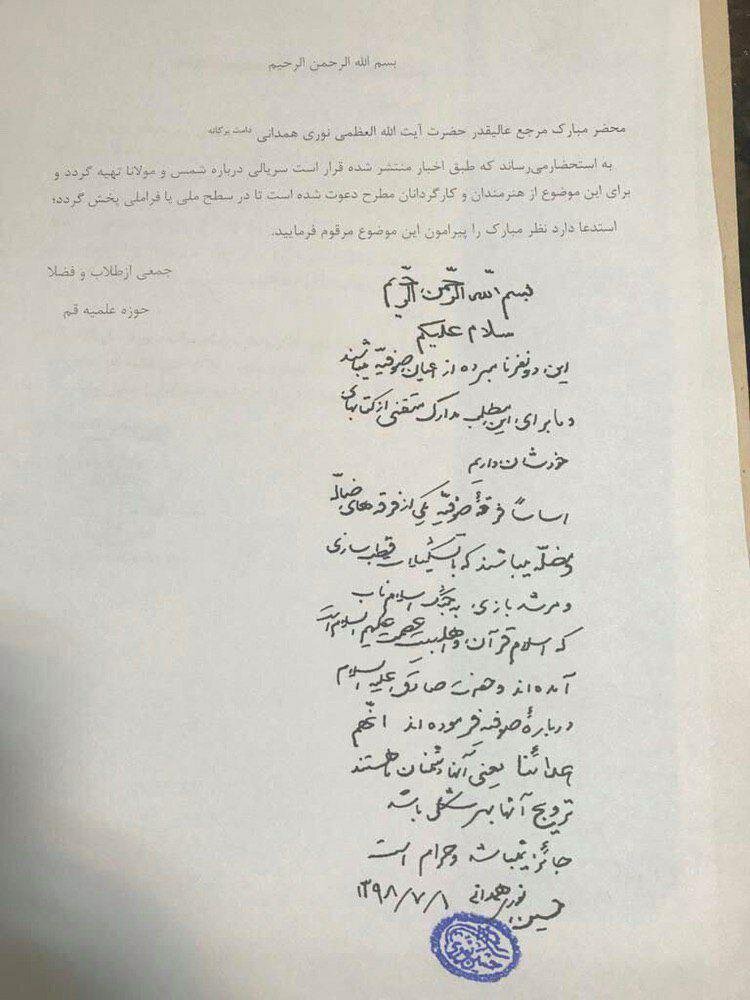 بسم الله الرحمن الرحیم
محضر مبارک مرجع عالیقدر حضرت آیت الله العظمی نوری همدانی دامت برکاته
به استحضارمی‌رساند که طبق اخبار منتشر شده قرار است سریالی درباره شمس و مولانا تهیه گردد و
برای این موضوع از هنرمندان و کارگردانان مطرح دعوت شده است تا در سطح ملی یا فراملی پخش گردد؛
استدعا دارد نظر مبارک را پیرامون این موضوع مرقوم فرمایید.
جمعی ازطلاب و فضلا
حوزه علمیه قم
بسم الله الرّحمن الرّحیم
سلام علیکم
این دو نفر نامبرده از اعیان صوفیّه میباشند
و ما برای این مطلب مدارک متقنی از کتابهای
خودشان داریم
اساساً فرقهٔ صوفیّه یکی از فرقه های ضالّه
و مضلّه میباشند که با تشکیلات قطب سازی
و مرشد بازی به جنگ اسلام ناب
که اسلام قرآن و اهلبیت عصمت علیهم السلام است
آمده اند و حضرت صادق علیه السلام
دربارهٔ صوفیه فرموده اند انّهم
اعدائنا یعنی آنها دشمنان ما هستند
ترویج آنها بهر شکلی باشد
جائز نمیباشد و حرام است
حسین نوری همدانی ۱۳۹۸/۷/۱